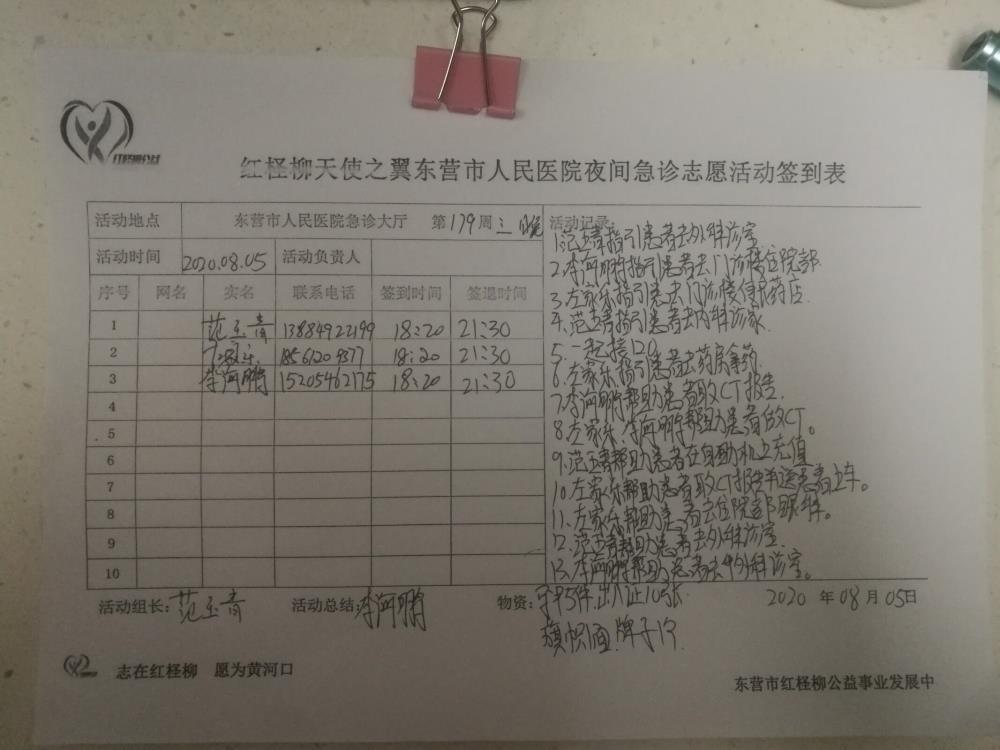 红柽柳公益
红柽柳天使之翼东营市人民医院夜间急诊志愿活动签到表
活动地点 东营市人民医院急诊大厅 第179周三晚
活动时间 2020.08.05 活动负责人
序号 网名 实名 联系电话 签到时间 签退时间
1 范玉青 13884922199 18:20 21:30
2 左家乐 18561209377 18:20 21:30
3 李海鹏 15205462175 18:20 21:30
4
5
6
7
8
9
10
活动记录:
1.范玉青指引患者去外科诊室
2.李海鹏指引患者去门诊楼住院部
3.左家乐指引患去门诊楼便民药店.
4.范玉青指引患者去内科诊家.
5.一起接120
6.左家乐指引患者去药房拿药.
7.李海鹏帮助患者取CT报告.
8.左家乐.李海鹏帮助患者做CT。
9.范玉青帮助患者在自助机上充值
10.左家乐帮助患者取CT报告单送患者上车。
11.左家乐帮助患者去住院部眼科。
12.范玉青帮助患者去外科诊室.
13.李海鹏帮助患者去外科诊室。
活动组长:范玉青 活动总结:李海鹏 物资: 5件.出入证10张 2020 年 08 月 05 日
旗帜 牌子1个
志在红柽柳 愿为黄河口
东营市红柽柳公益事业发展中